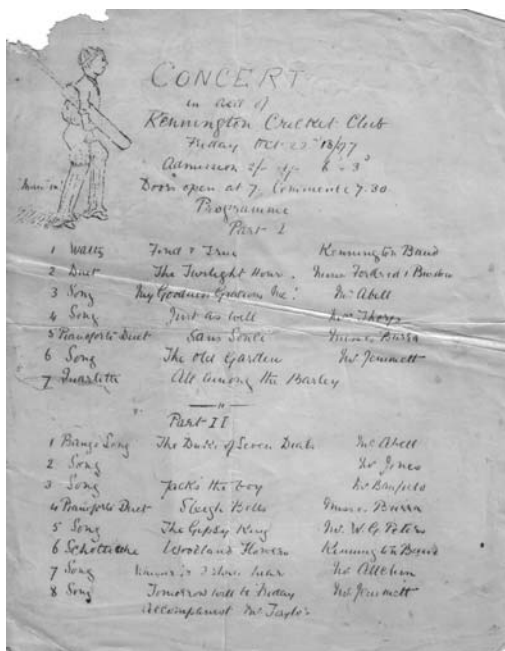 CONCERT
in aid of
Kennington Cricket Club
Friday Oct 22 1897
Admission 2/- 1/- 6 & 3
Doors open at 7. Commence 7.30
Programme
Part I
1 Waltz Fond & True Kennington Band
2 Duet The Twilight Hour. Misses
3 Song My Goodness Gracious Me! Mr Abell
4 Song Just as well Miss Thorps
5 Pianoforte Duet Sans Souci Misses Burra
6 Song The Old Garden Mr Jemmett
7 Quartette All Among the Barley
Part II
1 Banjo Song The Duke of Seven Dials Mr Abell
2 Song Mr Jones
3 Song Jack's the boy Mr Banfield
4 Pianoforte Duet Sleigh Bells Misses Burra
5 Song The Gipsy King Mr. W. G. Peters
6 Schottische Woodland Flowers Kennington Band
7 Song Mr Allchin
8 Song Tomorrow will be Friday Mr Jemmett
Accompanist Mr Taylor